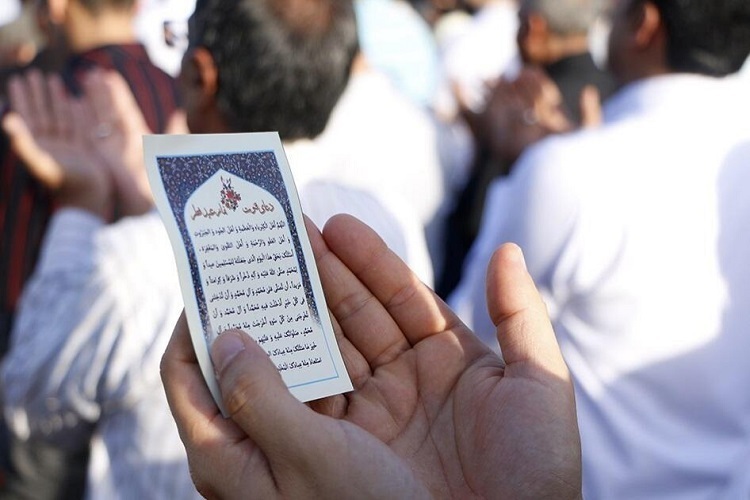 دعای قنوت نماز عید فطر
اللهم أهل الکبریاء و العظمة و أهل الجود و الجبروت
و أهل العفو و الرحمة و أهل التقوی و المغفرة،
أسئلک بحق هذا الیوم الذی جعلته للمسلمین عیداً و
لمحمد صلی الله علیه و آله ذخراً و شرفاً و کرامةً و
مزیداً، أن تصلی علی محمد و آل محمد و أن تدخلنی
فی کل خیر أدخلت فیه محمداً و آل محمد، و أن
تخرجنی من کل سوء أخرجت منه محمداً و آل
محمد، صلواتک علیه و علیهم
خیر ما سئلک منه عبادک الصا
استعاذ منه عبادک المخ